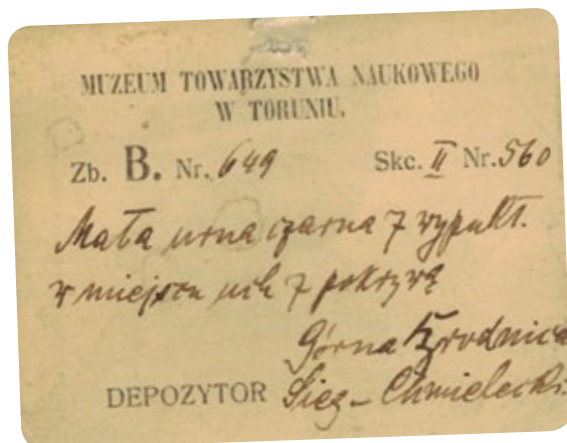 MUZEUM TOWARZYSTWA NAUKOWEGO
W TORUNIU.
Zb. B. Nr. 649 Skc. II Nr. 560
Mała urna czarna z wypukł.
w miejscu uch z pokrywą
Górna Brodnica
DEPOZYTOR Sieg-Chmielecki.